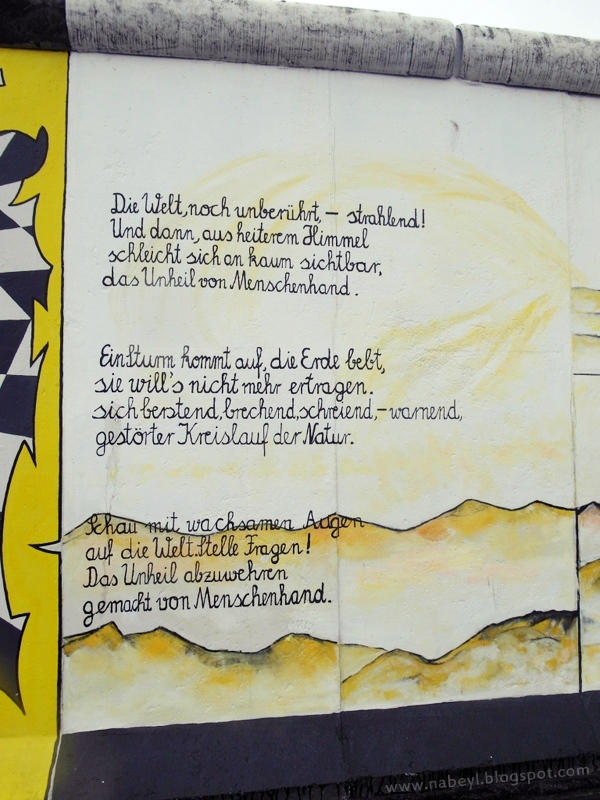 Die Welt, noch unberührt, – strahlend!
Und dann, aus heiterem Himmel
schleicht sich an kaum sichtbar,
das Unheil von Menschenhand.
Ein Sturm kommt auf, die Erde bebt,
sie will's nicht mehr ertragen.
sich berstend, brechend, schreiend, – warnend,
gestörter Kreislauf der Natur.
Schau mit wachsamen Augen
auf die Welt. Stelle Fragen!
Das Unheil abzuwehren
gemacht von Menschenhand.
www.nabeyl.blogspot.com